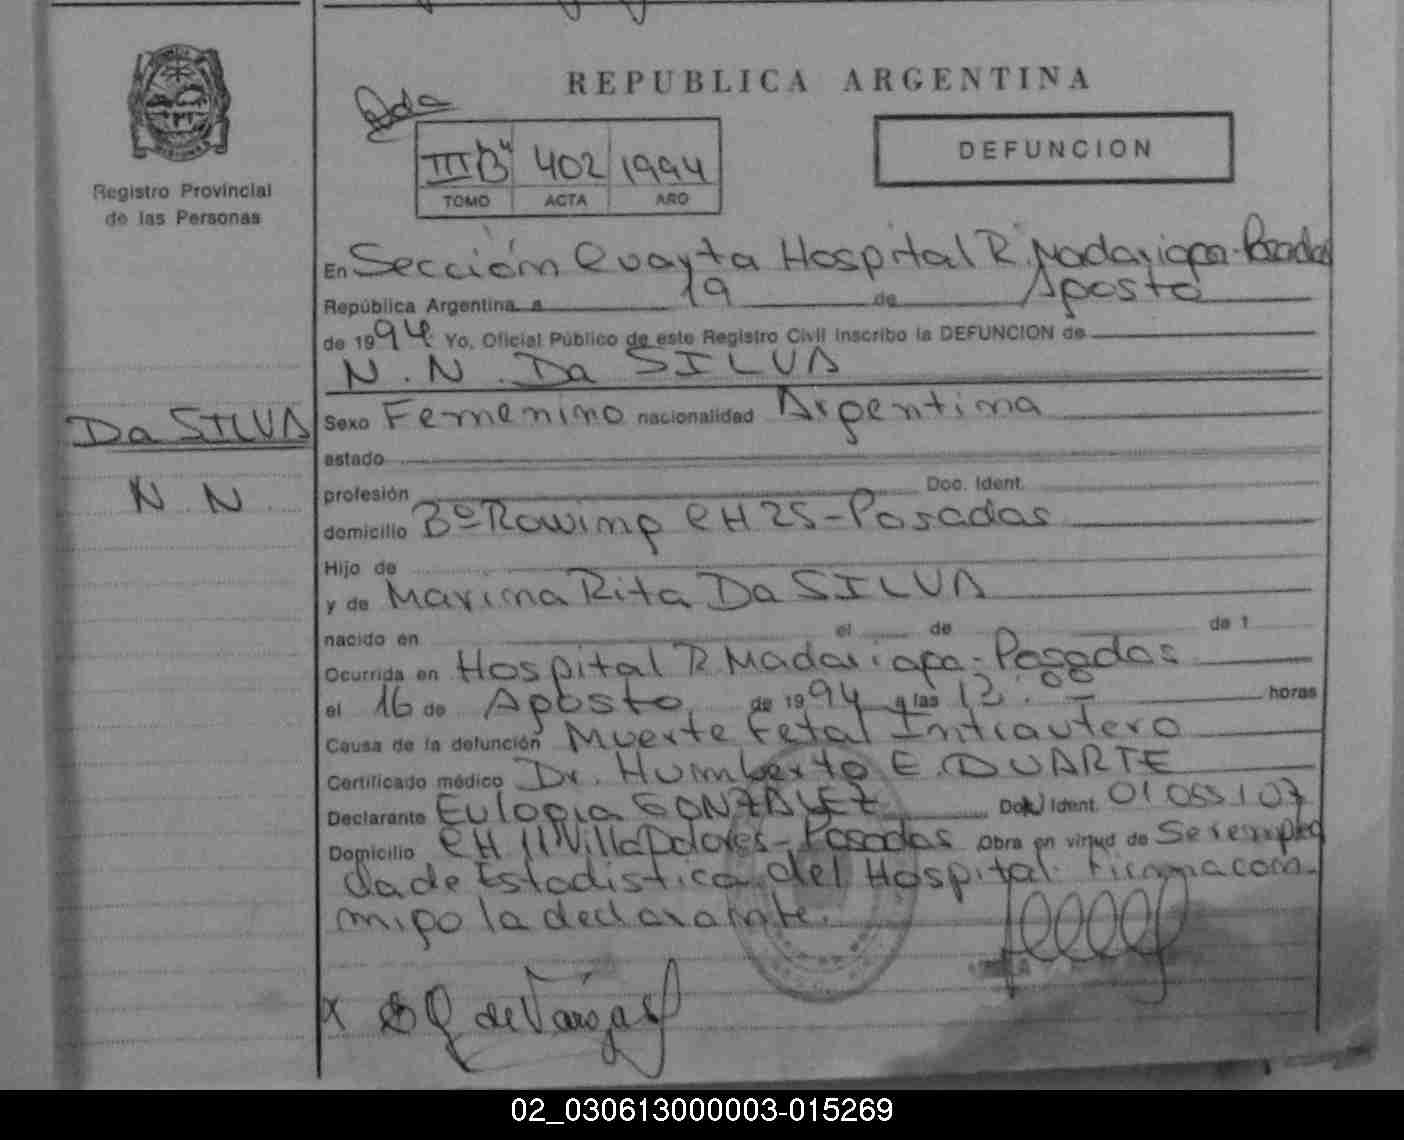 REPUBLICA ARGENTINA
Registro Provincial
de las Personas
III "B" 402 1994
TOMO ACTA AÑO
DEFUNCION
En Sección Cuarta Hospital R. Madariaga - Posadas
República Argentina, a 19 de Agosto
de 1994 Yo, Oficial Público de este Registro Civil inscribo la DEFUNCION de
N. N. Da SILVA
Da SILVA
N. N
Sexo Femenino nacionalidad Argentina
estado
profesión Doc. Ident.
domicilio Bº Rowing CH 25 - Posadas
Hijo de
y de Marina Rita Da SILVA
nacido en el de de 1
Ocurrida en Hospital R. Madariaga - Posadas
el 16 de Agosto de 1994 a las 12:00 horas
Causa de la defunción Muerte Fetal Intrautero
Certificado médico Dr. Humberto E. DUARTE
Declarante Eulogia GONZALEZ Doc. Ident.
Domicilio CH 11 Villa Dolores - Posadas Obra en virtud de Ser emplea
da de Estadistica del Hospital. Firma con-
migo la declarante.
X de Vargas
02_030613000003-015269